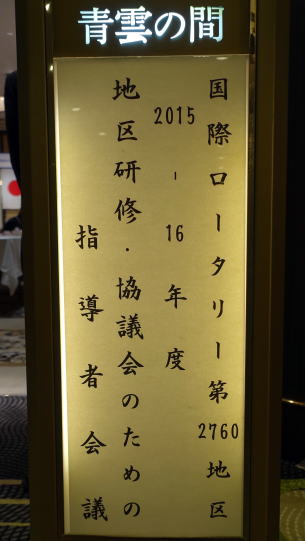 青雲の間
国際ロータリー第2760地区
2015-16年度
地区研修・協議会のための
指導者会議